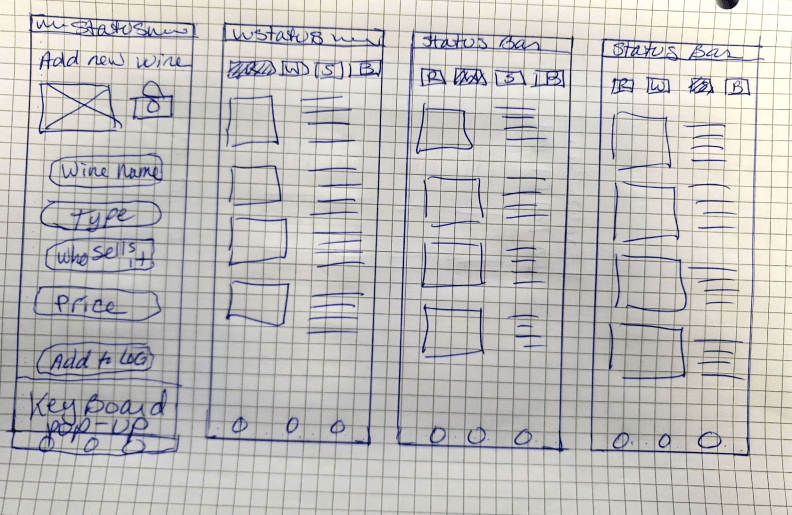 Status
Add new wine
Wine name
Type
Who sells it
Price
Add to LOG
KeyBoard
POP-UP
Status
W S B
Status Bar
R S B
Status Bar
R W B